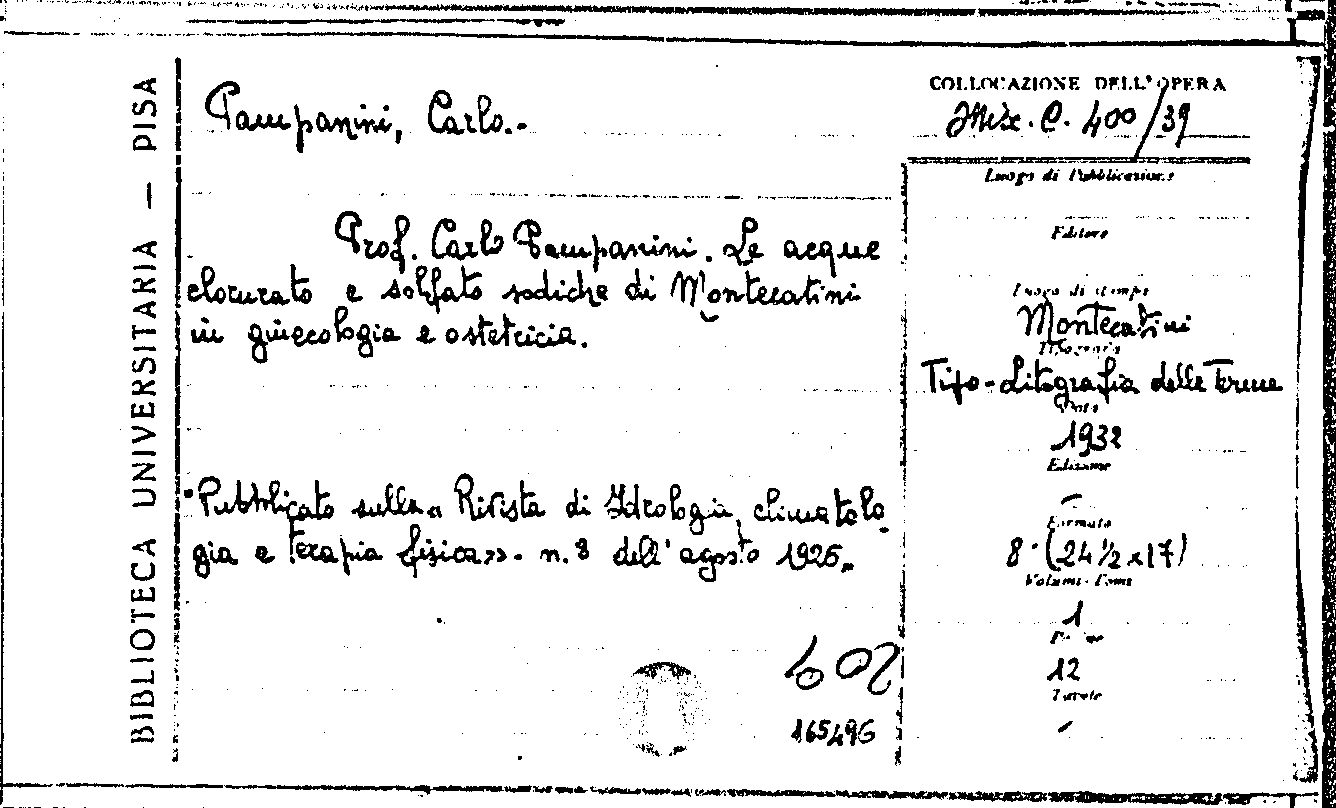 BIBLIOTECA UNIVERSITARIA — PISA
Pampanini, Carlo.-
Prof. Carlo Pampanini. Le acque
clorurato e solfato sodiche di Montecatini
in ginecologia e ostetricia.
"Pubblicato sulla « Rivista di Idrologia, climatolo
gia e terapia fisica». n. 8 dell'agosto 1926„
602
165496
COLLOCAZIONE DELL'OPERA
Misc. C. 400/39
Luogo di Pubblicazione
Editore
Luogo di stampa
Montecatini
Tipografia
Tipo-Litografia delle Terme
Data
1932
Edizione
-
Formato
8° (24 1/2 x 17)
Volumi-Tomi
1
Pagine
12
Tavole
-